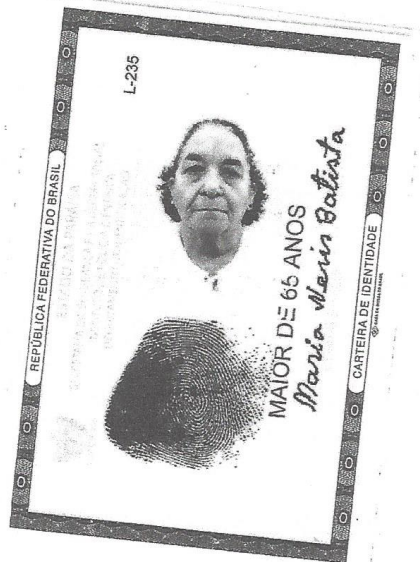 REPÚBLICA FEDERATIVA DO BRASIL
L-235
MAIOR DE 65 ANOS
Maria Neris Batista
CARTEIRA DE IDENTIDADE